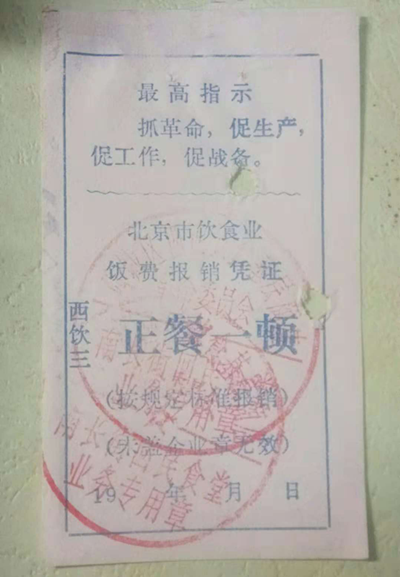 最高指示
抓革命，促生产，
促工作，促战备。
北京市饮食业
饭费报销凭证
西饮三
正餐一顿
（按规定标准报销）
（未盖企业章无效）
19 年 月 日
食堂
业务专用章